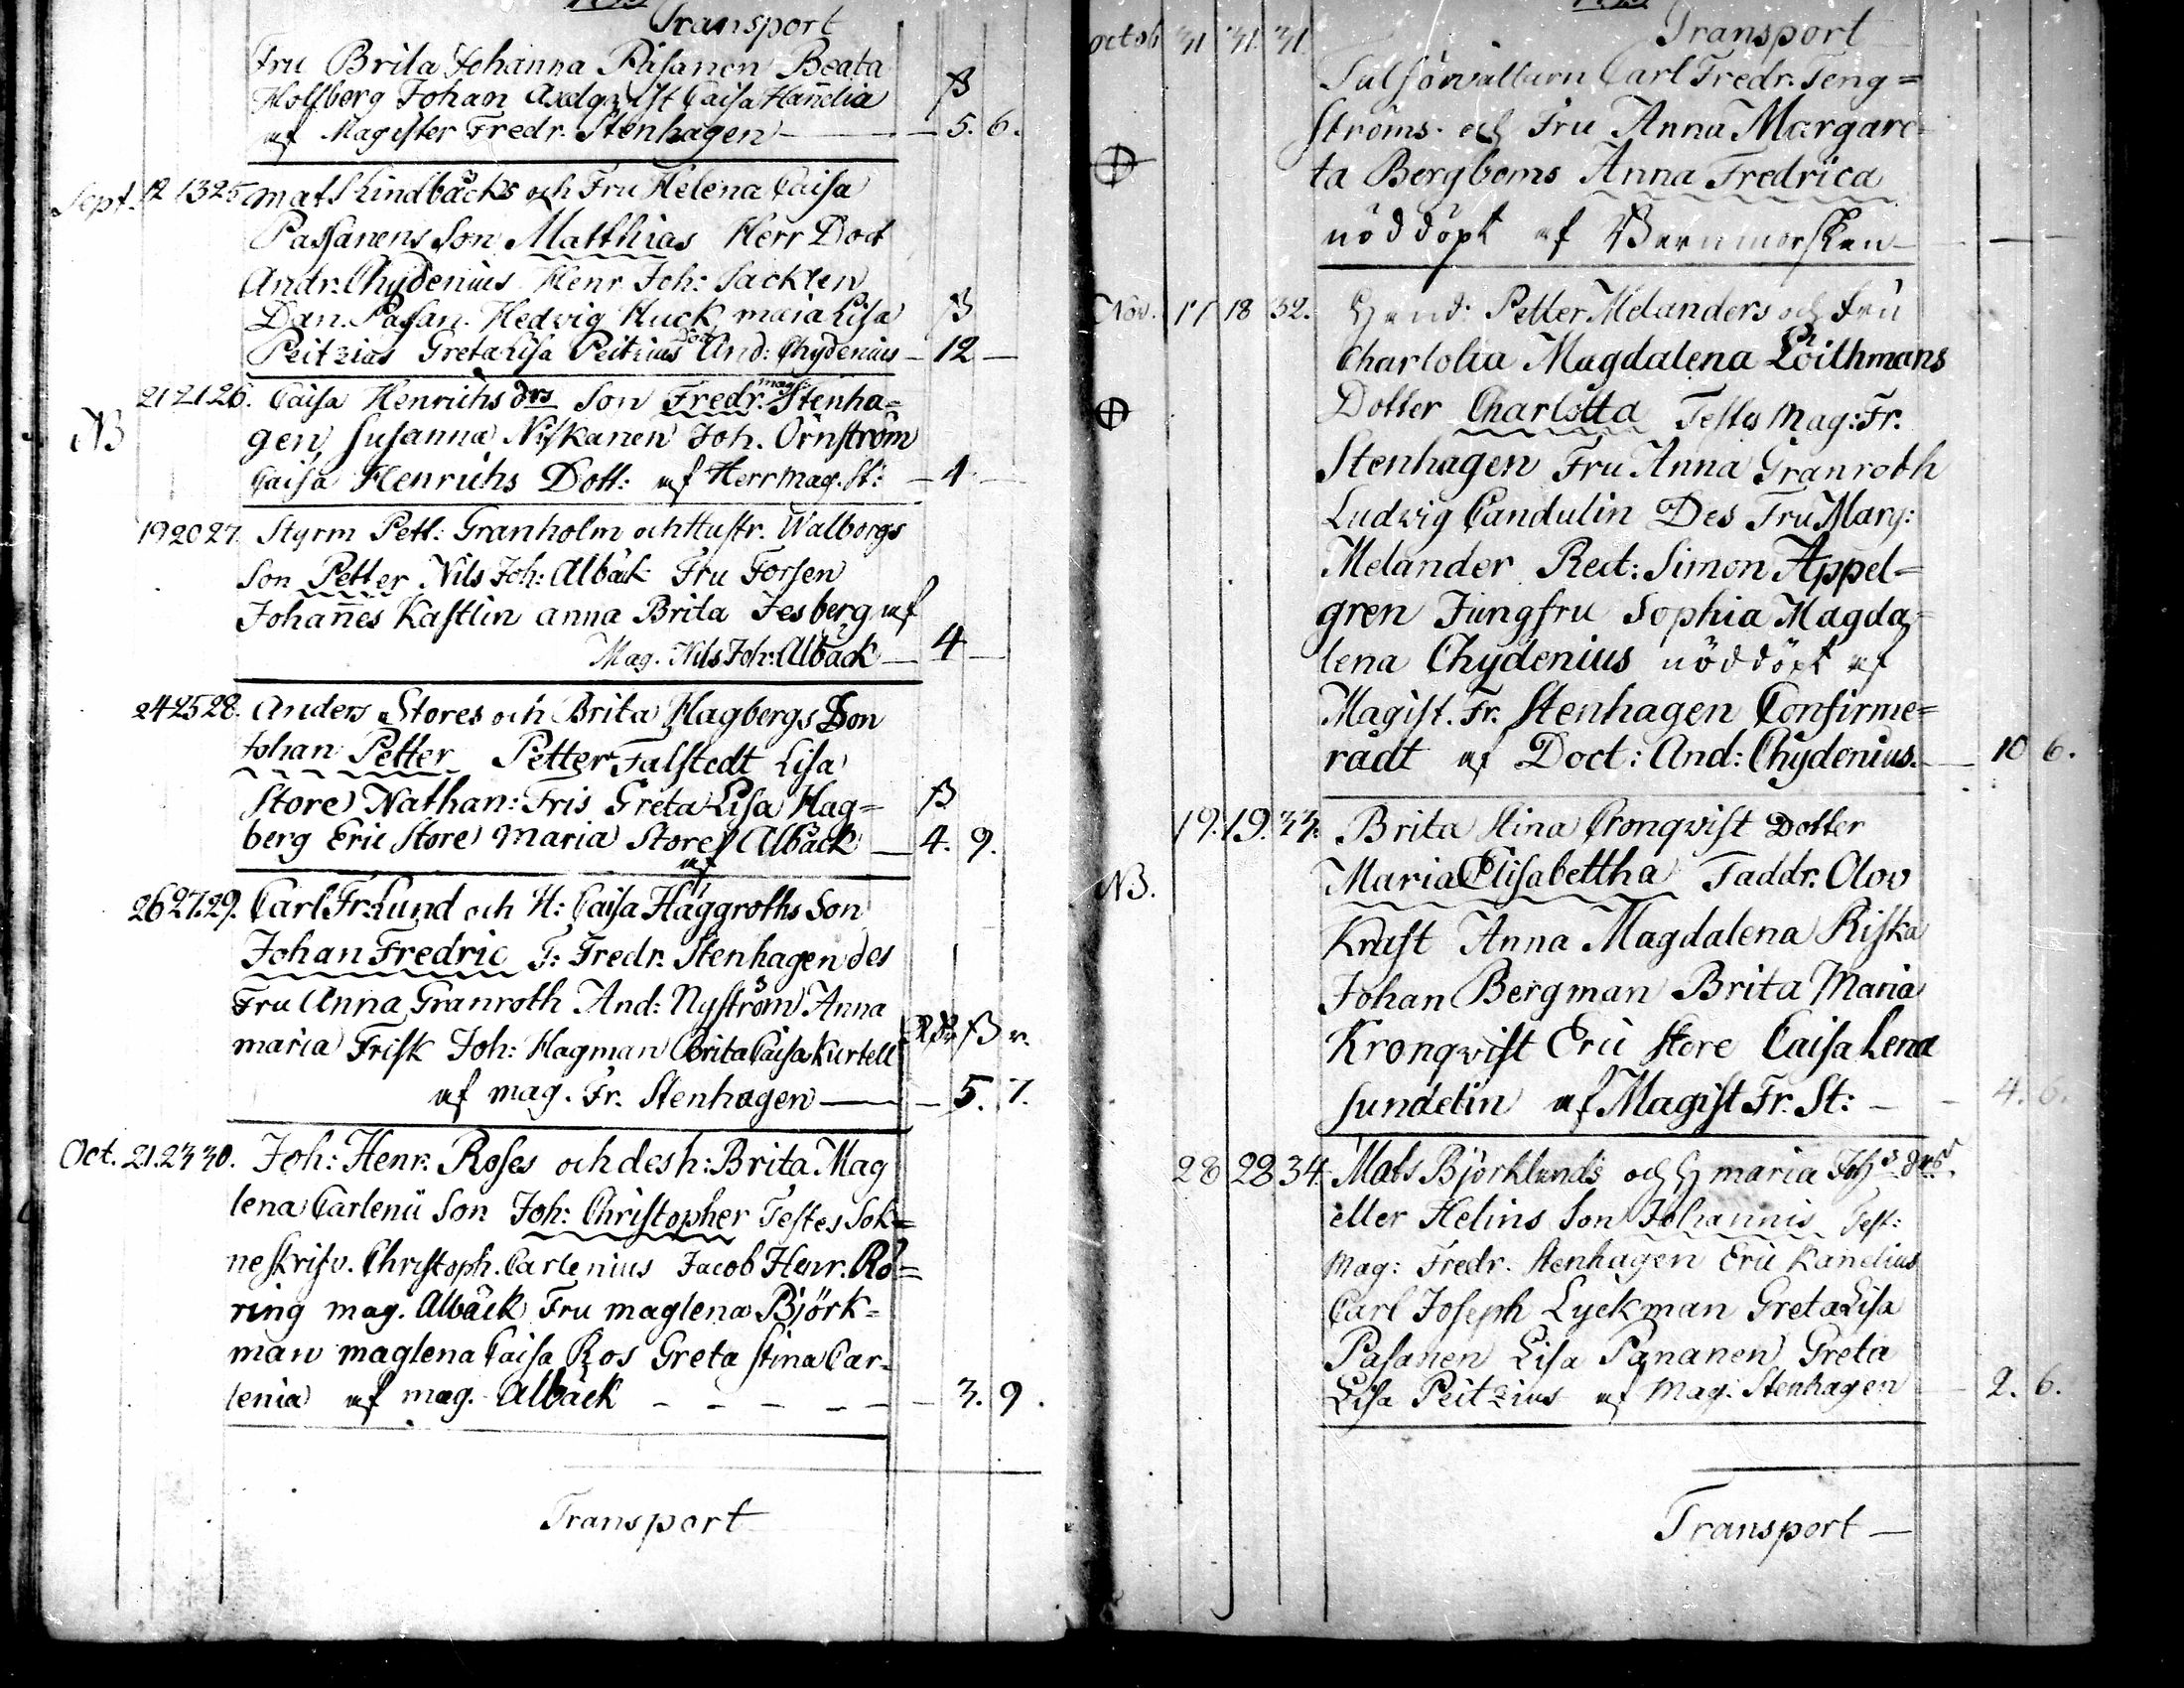 Transport
Fru Brita Johanna Påsanen Beata
Holsberg Johan Axelqvist Caisa Hanelia ß
af Magister Fredr. Stenhagen — 5. 6.
Sept. 12 13 25 Mats Lindbäcks och Fru Helena Caisa
Passanens Son Matthias Herr Doct
Andr. Chydenius Henr Joh: Sacklen
Dan. Passan. Hedvig Huck, maia Lisa ß
Peitzias Greta Lisa Peitzius Doct And: Chydenius — 12 —
21 21 26. Caisa Henrichs drs Son Fredr. mag: Stenha=
NB gen, Susanna Niskanen Joh. Örnström
Caisa Henrichs Dott: af Herr mag. St: — 4 —
19 20 27. Styrm Pett: Granholm och Hustr. Walborgs
Son Petter Nils Joh: Albäck Fru Forsen
Johannes Kastlin anna Brita Jesberg af
Mag. Nils Joh: Albäck — 4 —
24 25 28. Anders Stores och Brita Hagbergs Son
Johan Petter Petter Falstedt Lisa
Store Nathan: Fris Greta Lisa Hag= ß
berg Eric Store Maria Store af Albäck — 4. 9.
26 27. 29. Carl Fr. Lund och H: Caisa Häggroths Son
Johan Fredric T: Fredr. Stenhagen des
Fru Anna Granroth And: Nyström Anna
maria Frisk Joh: Hagman Brita Caisa Kurtell Rdr ß r.
af mag. Fr. Stenhagen — 5. 7.
Oct. 21. 23 30. Joh: Henr. Roses och des h: Brita Mag
lena Carlenii Son Joh: Christopher Testes Sok=
neskrifv. Christoph. Carlenius Jacob Henr. Rö=
ring mag. Albäck Fru maglena Björk=
man maglena Caisa Ros Greta Stina Car=
lenia af mag. Albäck — 3. 9.
Transport
Transport
Octob 31 31. 31 Carl Fredr. Teng=
Ströms och Fru Anna Margare=
ta Bergboms Anna Fredrica
nöddöpt af Barnmorskan —
Nov. 17 18 32. Hand: Petter Melanders och fru
Charlotta Magdalena Loithmans
Dotter Charlotta Testes Mag: Fr.
Stenhagen Fru Anna Granroth
Ludvig Candulin Des Fru Marg:
Melander Rect: Simon Appel=
gren Jungfru Sophia Magda=
lena Chydenius nöddöpt af
Magist. Fr. Stenhagen Confirme=
radt af Doct: And: Chydenius. — 10 6.
19. 19. 33. Brita Stina Cronqvist Dotter
NB. Maria Elisabettha Faddr. Olov
Knust Anna Magdalena Riska
Johan Bergman Brita Maria
Kronqvist Eric Store Caisa Lena
Sundelin af Magist Fr. St: — 4. 6.
28 28 34. Mats Björklunds och H maria Johs drs
eller Helins Son Johannis Test:
Mag: Fredr. Stenhagen Eric Kanelius
Carl Joseph Lyckman Greta Lisa
Pasanen Lisa Pananen Greta
Lisa Peitzius af Mag: Stenhagen — 2. 6.
Transport —